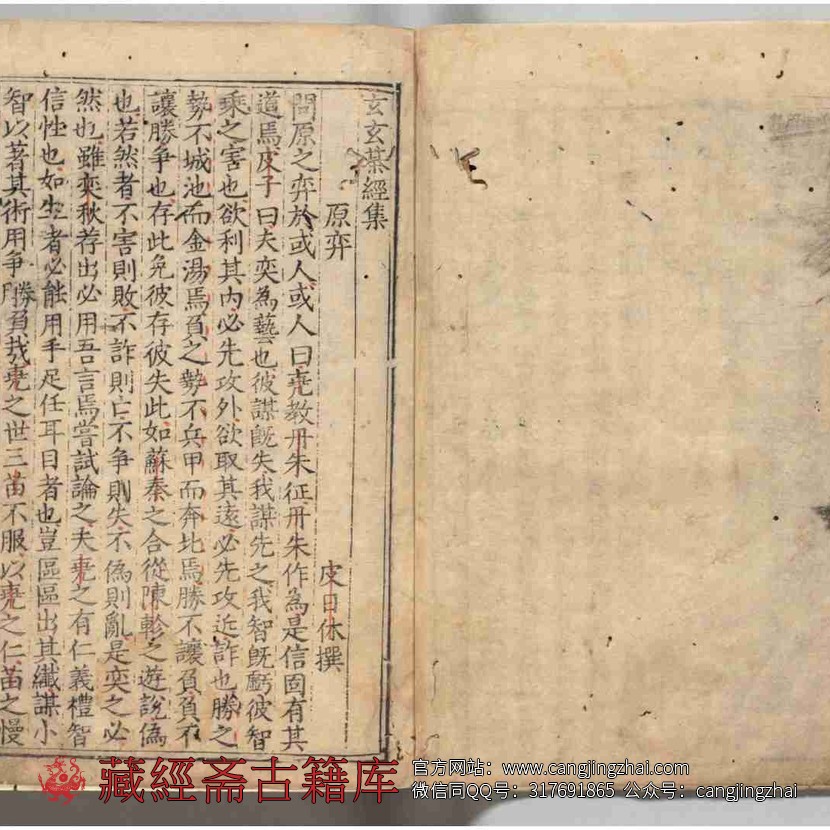 玄玄棊經集
原弈
皮日休撰
問原之弈於或人或人曰堯教丹朱征丹朱作為是信固有其
道焉皮子曰夫奕為藝也彼謀旣失我謀先之我智旣虧彼智
乘之害也欲利其内必先攻外欲取其遠必先攻近詐也勝之
勢不城池而金湯焉負之勢不兵甲而奔北焉勝不讓負負不
讓勝爭也存此免彼存彼失此如蘇秦之合從陳軫之遊說偽
也若然者不害則敗不詐則亡不争則失不偽則亂是奕之必
然也雖奕秋荐出必用吾言焉嘗試論之夫堯之有仁義禮智
信性也如生者必能用手足任耳目者也豈區區出其纖謀小
智以著其術用争勝負哉堯之世三苗不服以堯之仁苗之慢
藏經斋古籍库
官方网站：www.cangjingzhai.com
微信同QQ号：317691865 公众号：cangjingzhai